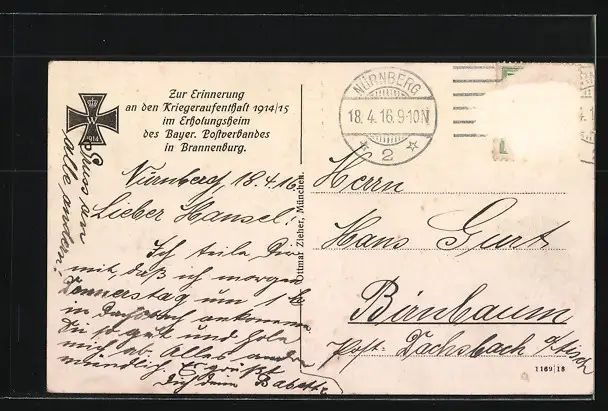 Zur Erinnerung
an den Kriegeraufenthalt 1914/15
im Erholungsheim
des Bayer. Postverbandes
in Brannenburg.
W
1914
Gruss an
alle andern!
Nürnberg 18.4.16.
Lieber Hansel!
Ich teile Dir
mit, daß ich morgen
Donnerstag um 1
in Dachsbach ankomme
Du so gut und hole
mich ab. Alles andere
mündlich. Es grüßt
Dich deine Babette
Ottmar Zieher, München.
NÜRNBERG
18.4.16.9-10N
2
Herrn
Hans Gurt
Birnbaum
Post: Dachsbach a/Aisch
1169/18